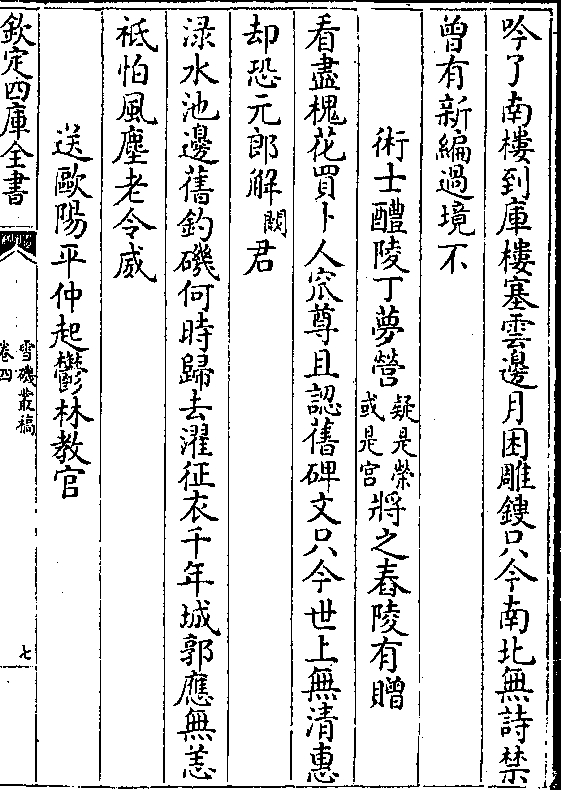 吟了南樓到庫樓塞雲邊月困雕鎪只今南北無詩禁
曾有新編過境不
術士醴陵丁夢營疑是榮或是宫將之舂陵有贈
看盡槐花買卜人㝡尊且認舊碑文只今世上無清惠
却恐元郎解闕君
渌水池邊舊釣磯何時歸去濯征衣千年城郭應無恙
祗怕風塵老令威
送歐陽平仲起鬱林教官
欽定四庫全書
雪磯叢稿
卷四
七